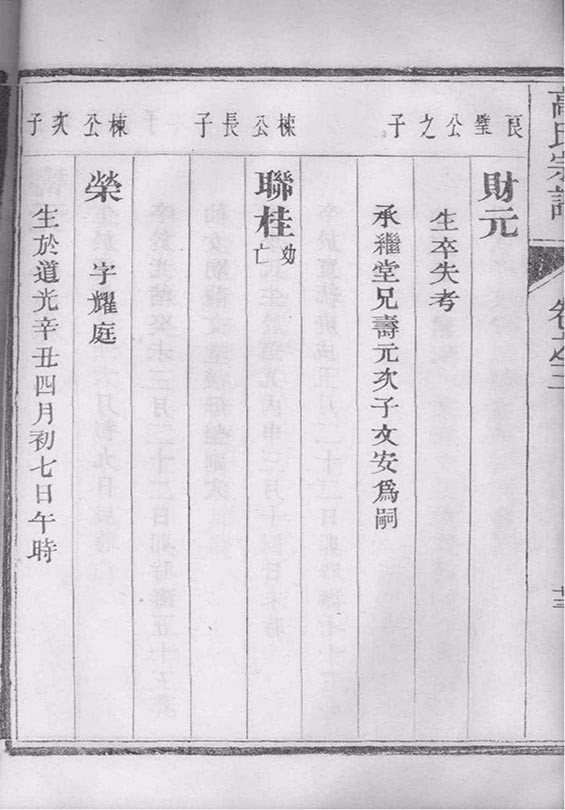 高氏宗譜
卷之三
良璧公之子
財元
生卒失考
承繼堂兄壽元次子文安爲嗣
棟公長子
聯桂 幼亡
棟公次子
榮 字耀庭
生於道光辛丑四月初七日午時